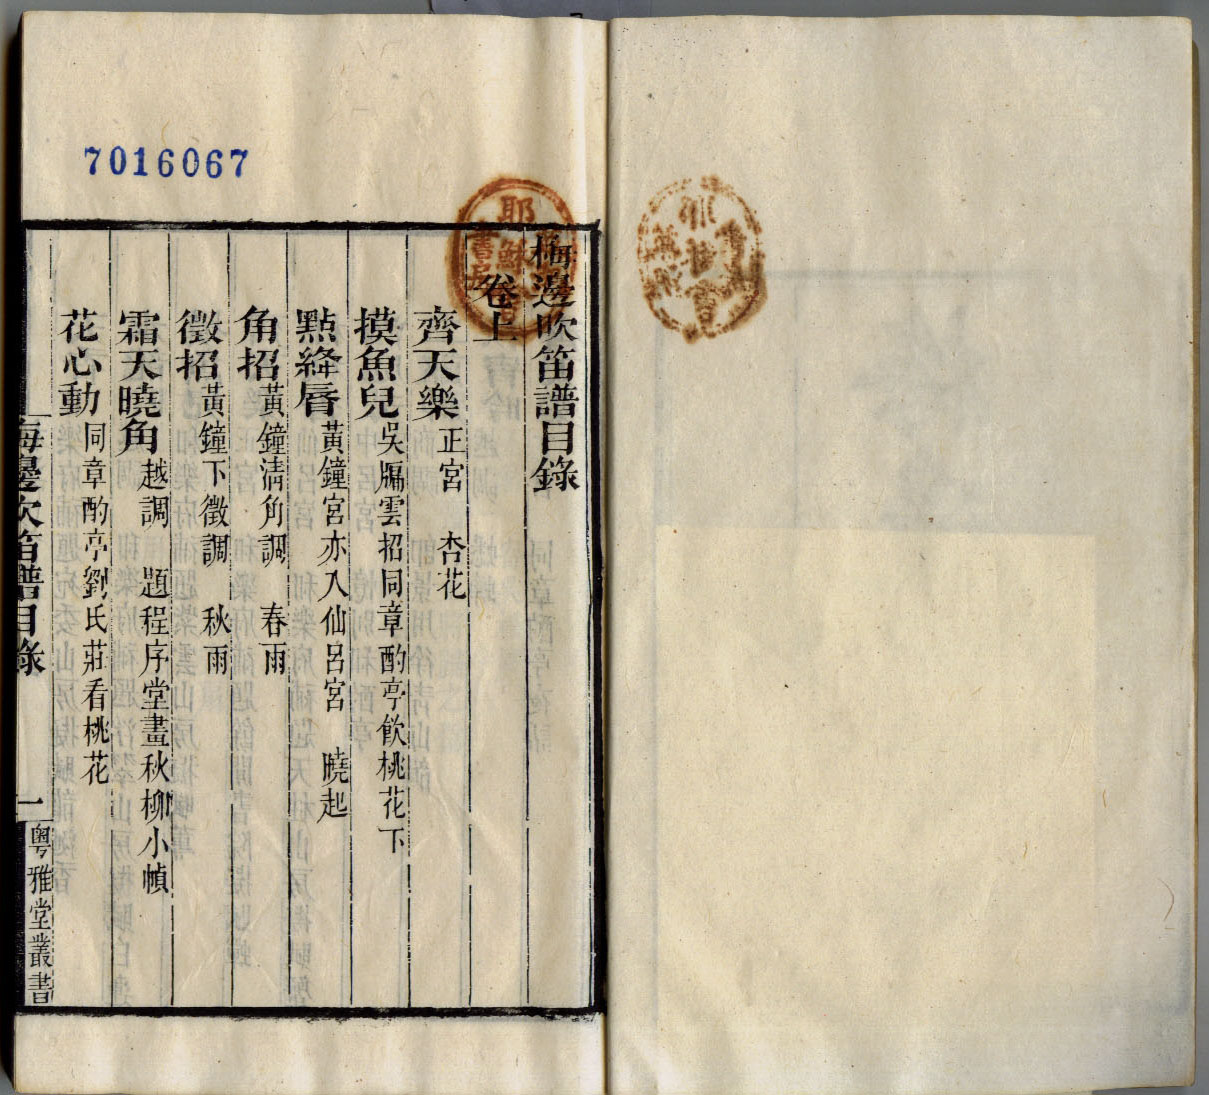 7016067
梅邊吹笛譜目錄
卷上
齊天樂 正宮 杏花
摸魚兒 吳牖雲招同章酌亭飲桃花下
點絳脣 黃鐘宮亦入仙呂宮 曉起
角招 黃鐘清角調 春雨
徵招 黃鐘下徵調 秋雨
霜天曉角 越調 題程序堂畫秋柳小幀
花心動 同章酌亭劉氏莊看桃花
梅邊吹笛譜目錄 一 粤雅堂叢書